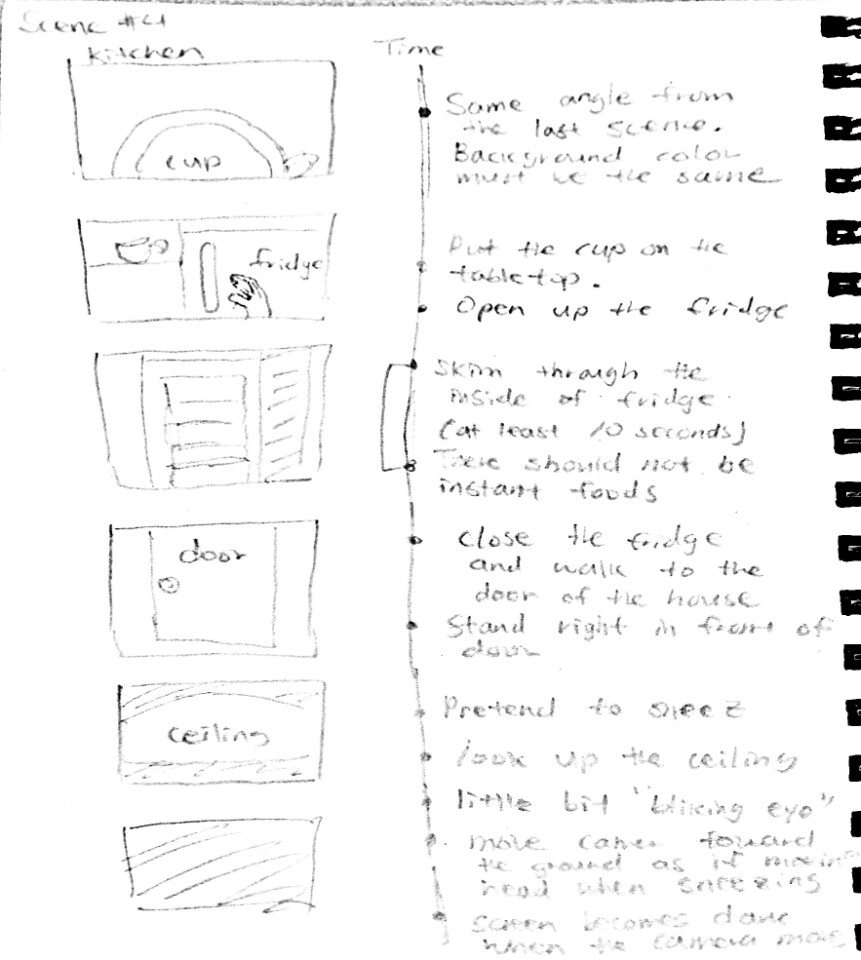 Scene #4
Kitchen
Time
cup
Same angle from
the last scene.
Background color
must be the same
fridge
Put the cup on the
tabletop.
Open up the fridge
Skim through the
inside of fridge
(at least 10 seconds)
There should not be
instant foods
door
close the fridge
and walk to the
door of the house
Stand right in front of
door
ceiling
Pretend to sneez
look up the ceiling
little bit "blicing eye"
move camer toward
the ground as if moving
head when sneezing
screen becomes dark
when the camera move